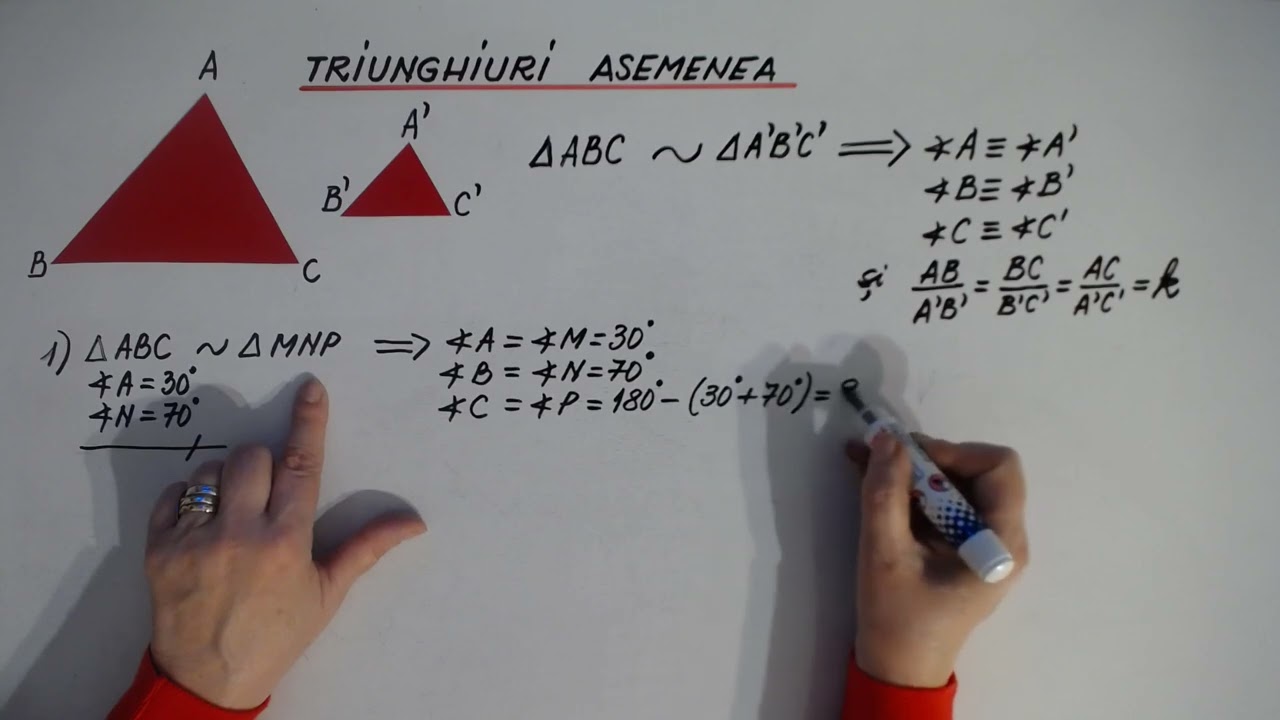 TRIUNGHIURI ASEMENEA
A
A'
B'
C'
B
C
ΔABC ~ ΔA'B'C' ⟹ ∢A ≡ ∢A'
∢B ≡ ∢B'
∢C ≡ ∢C'
și AB/A'B' = BC/B'C' = AC/A'C' = k
1) ΔABC ~ ΔMNP ⟹ ∢A = ∢M = 30°
∢A = 30°
∢N = 70°
∢B = ∢N = 70°
∢C = ∢P = 180° - (30° + 70°) =